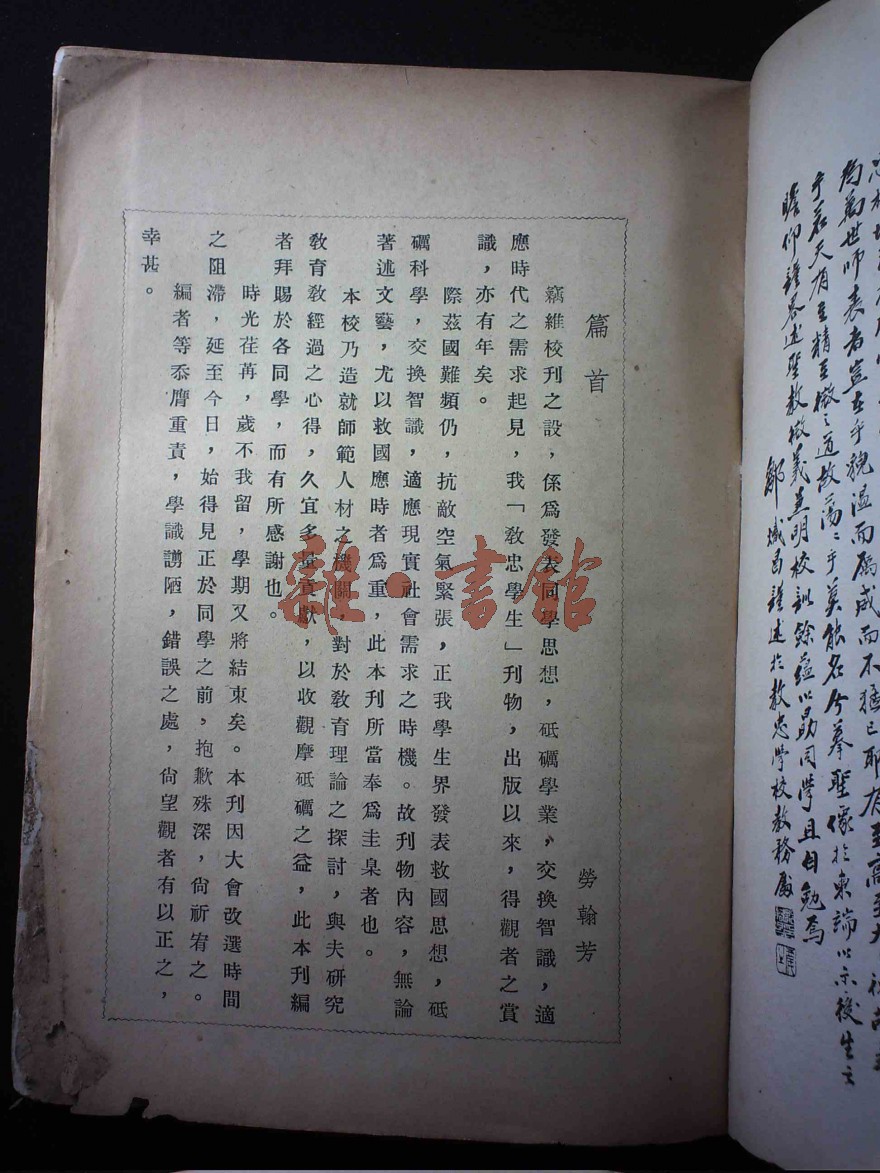 為萬世師表者豈在乎貌溫而厲威而不猛已耶有至高至大
有至精至微之道故蕩〻乎莫能名今摹聖像於東端以示後生之
瞻仰謹畧述聖教微義並明校訓餘蘊以勗同學且自勉焉
謹述於敎忠學校敎務處
篇首
勞翰芳
竊維校刊之設，係爲發表同學思想，砥礪學業，交換智識，適
應時代之需求起見，我「敎忠學生」刊物，出版以來，得觀者之賞
識，亦有年矣。
際茲國難頻仍，抗敵空氣緊張，正我學生界發表救國思想，砥
礪科學，交換智識，適應現實社會需求之時機。故刊物內容，無論
著述文藝，尤以救國應時者爲重，此本刊所當奉爲圭臬者也。
本校乃造就師範人材之機關，對於敎育理論之探討，與夫研究
敎育敎經過之心得，久宜多量貢獻，以收觀摩砥礪之益，此本刊編
者拜賜於各同學，而有所感謝也。
時光荏苒，歲不我留，學期又將結束矣。本刊因大會改選時間
之阻滯，延至今日，始得見正於同學之前，抱歉殊深，尙祈宥之。
編者等忝膺重責，學識謭陋，錯誤之處，尙望觀者有以正之，
幸甚。
雜·書館